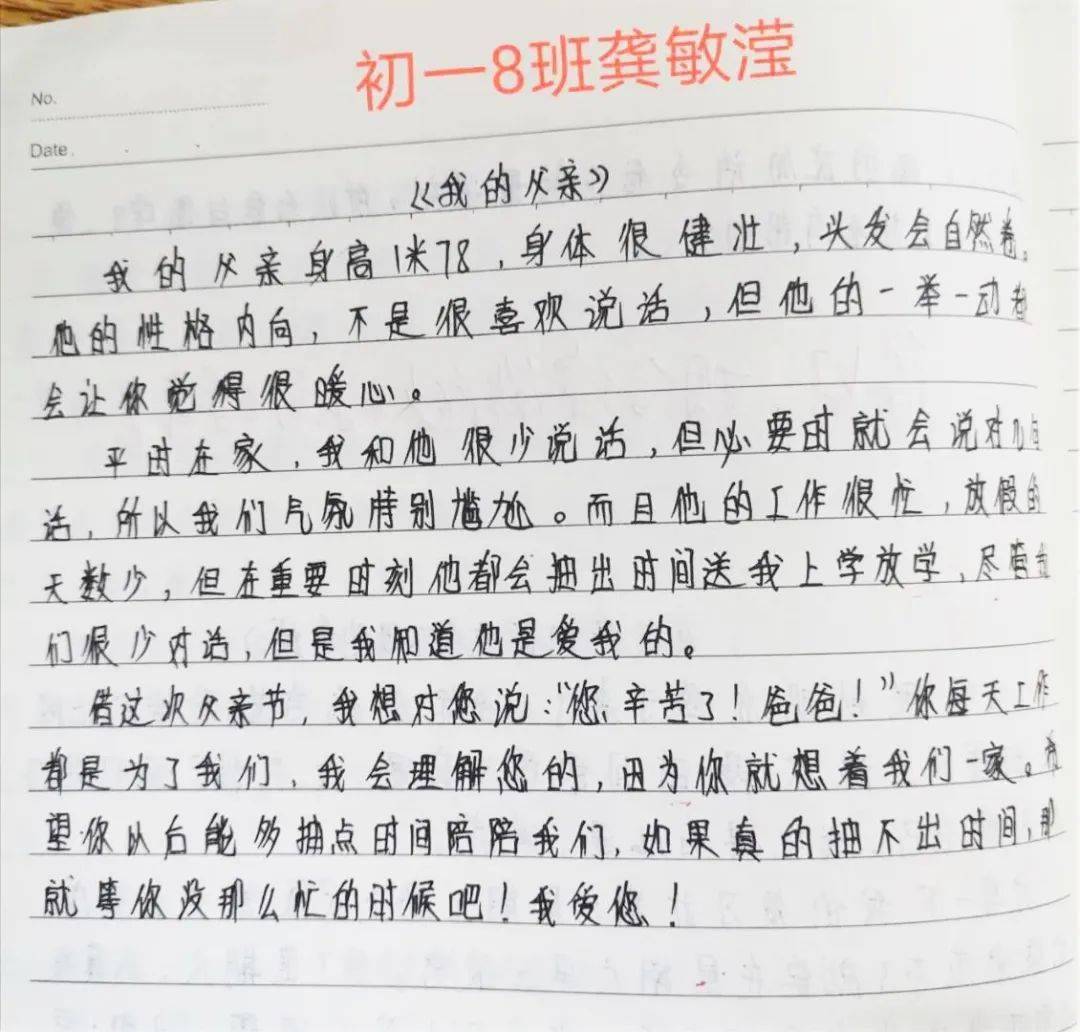 初一8班龚敏滢
No.
Date.
《我的父亲》
我的父亲身高1米78，身体很健壮，头发会自然卷。
他的性格内向，不是很喜欢说话，但他的一举一动都
会让你觉得很暖心。
平时在家，我和他很少说话，但必要时就会说对几句
话，所以我们气氛特别尴尬。而且他的工作很忙，放假的
天数少，但在重要时刻他都会抽出时间送我上学放学，尽管我
们很少对话，但是我知道他是爱我的。
借这次父亲节，我想对您说："您辛苦了！爸爸！"你每天工作
都是为了我们，我会理解您的，因为你就想着我们一家。希
望你以后能多抽点时间陪陪我们，如果真的抽不出时间，那
就等你没那么忙的时候吧！我爱您！